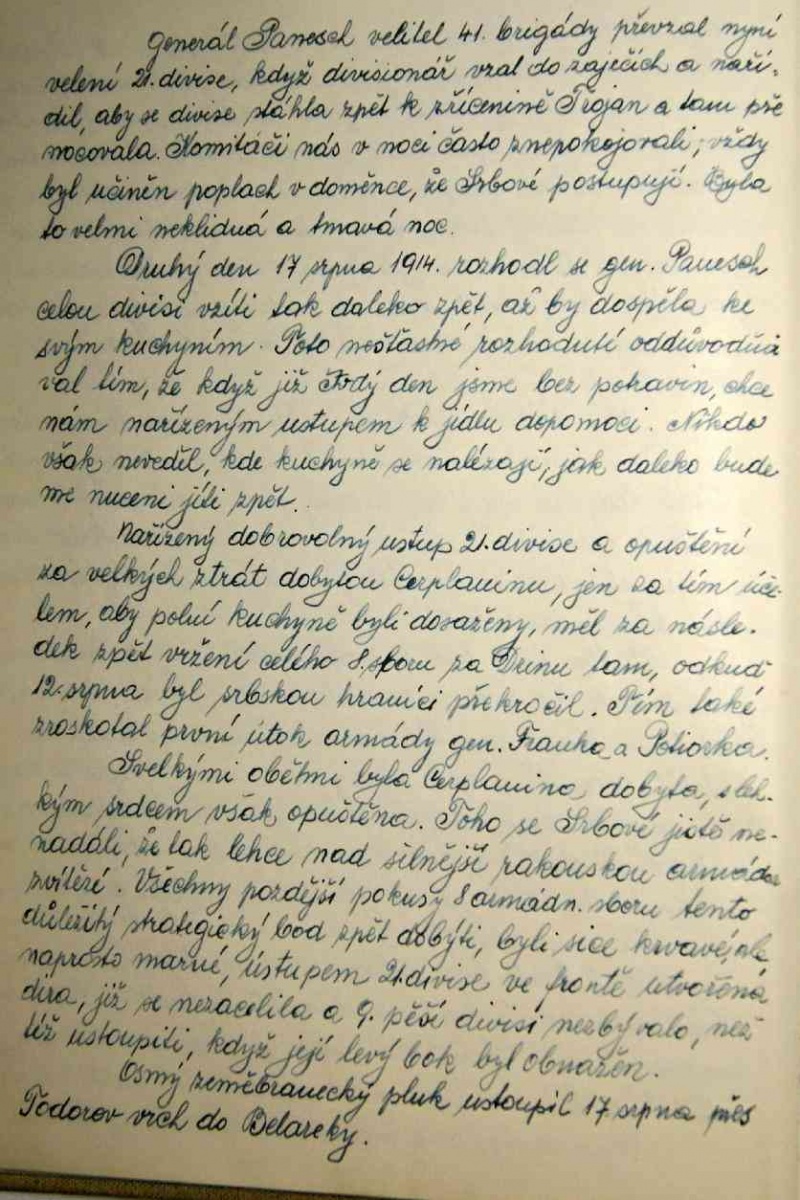 Generál Panesch velitel 41. brigády převzal nyní
velení 21. divise, když divisionář vzal do zaječích a naří-
dil, aby se divise stáhla zpět k zřícenině Trojan a tam pře
nocovala. Komitáči nás v noci často znepokojovali; vždy
byl učiněn poplach v doměnce, že Srbové postupují. Byla
to velmi neklidná a tmavá noc.
Druhý den 17 srpna 1914. rozhodl se gen. Panesch
celou divisi vzíti tak daleko zpět, až by dospěla ke
svým kuchyním. Toto nešťastné rozhodutí oddůvodňo
val tím, že když již čtvrtý den jsme bez potravin, chce
nám nařízeným ustupem k jídlu dopomoci. Nikdo
však nevěděl, kde kuchyně se nalézají, jak daleko bude
me nuceni jíti zpět.
Nařízený dobrovolný ustup 21. divise a opuštění
za velkých ztrát dobytou Cerplaninu, jen za tím úče-
lem, aby polní kuchyně byli dosaženy, měl za násle-
dek zpět vržení celého 8. sboru za Drinu tam, odkud
12. srpna byl srbskou hranici překročil. Tím také
zroskotal první útok armády gen. Franka a Potiorka.
S velkými oběťmi byla Cerplanina dobyta, s leh-
kým srdcem však opuštěna. Toho se Srbové jistě ne-
nadáli, že tak lehce nad silnější rakouskou armádou
zvítězí. Všechny pozdější pokusy 8 armádn. sboru tento
důležitý strategický bod zpět dobýti, byli sice krvavé, ale
naprosto marné, ústupem 21. divise ve frontě utvořená
díra, již se nezacelila a 9. pěší divisi nezbývalo, než
též ustoupiti, když její levý bok byl obnažen.
Osmý zeměbranecký pluk ustoupil 17 srpna přes
Todorov vrch do Belareky.